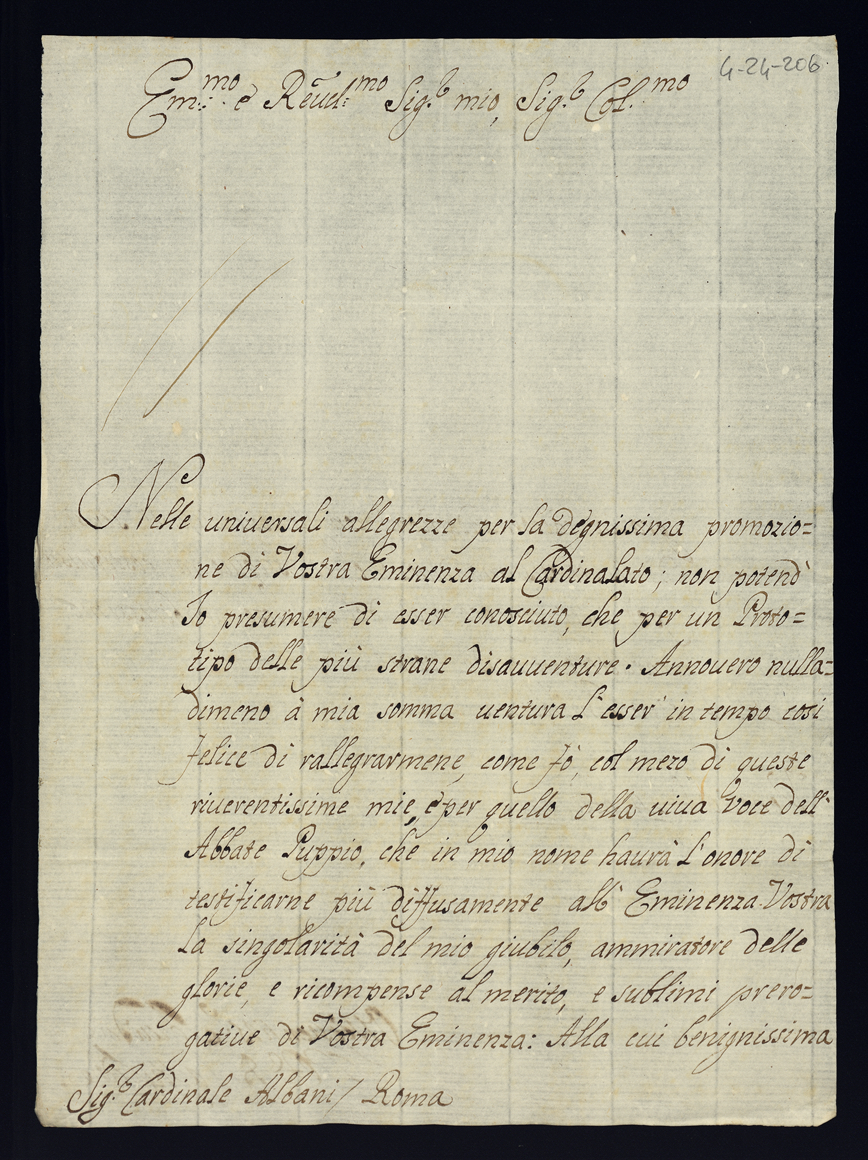 4-24-206.
Em:mo e Reud:mo Sig.r mio, Sig.r Col.mo
Nelle uniuersali allegrezze per la degnissima promozio=
ne di Vostra Eminenza al Cardinalato; non potend'
Io presumere di esser conosciuto, che per un Proto=
tipo delle più strane disauuenture. Annouero nulla=
dimeno à mia somma uentura l'esser' in tempo così
felice di rallegrarmene, come fò, col mezo di queste
riuerentissime mie, e per quello della uiua Voce dell'
Abbate Puppio, che in mio nome haurà l'onore di
testificarne più diffusamente all' Eminenza Vostra
la singolarità del mio giubilo, ammiratore delle
glorie, e ricompense al merito, e sublimi prero=
gatiue di Vostra Eminenza: Alla cui benignissima
Sig.r Cardinale Albani / Roma